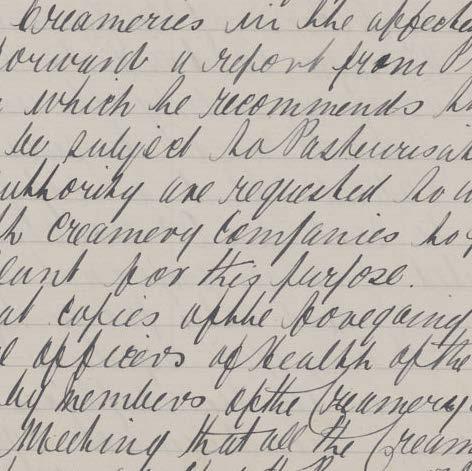 Creameries in the affected
forward a report from
which he recommends
be subject to Pasteurisat
Authority are requested to
Creamery Companies to
lant for this purpose.
at copies of the foregoing
officers of Health of the
by members of the Creamery
Meeting that all the Cream